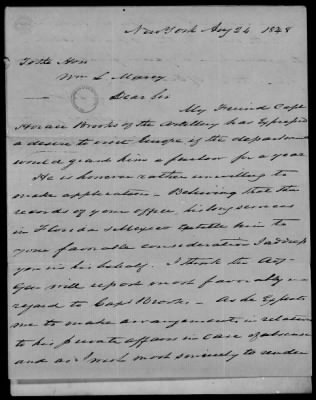 New York Aug 24 1848
To the Hon
Wm L. Marcy
Dear Sir
My Friend Capt
Horace Brooks of the Artillery has expressed
a desire to visit Europe if the department
would grant him a furlow for a year
He is however rather unwilling to
make application – Believing that the
records of your office, his long services
in Florida & Mexico entitle him to
your favorable consideration I address
you in his behalf. I think the Adjt
Genl will report most favorably in
regard to Capt Brooks – As he expects
me to make arrangements in relation
to his private affairs in case of absence
and as I wish most sincerely to render